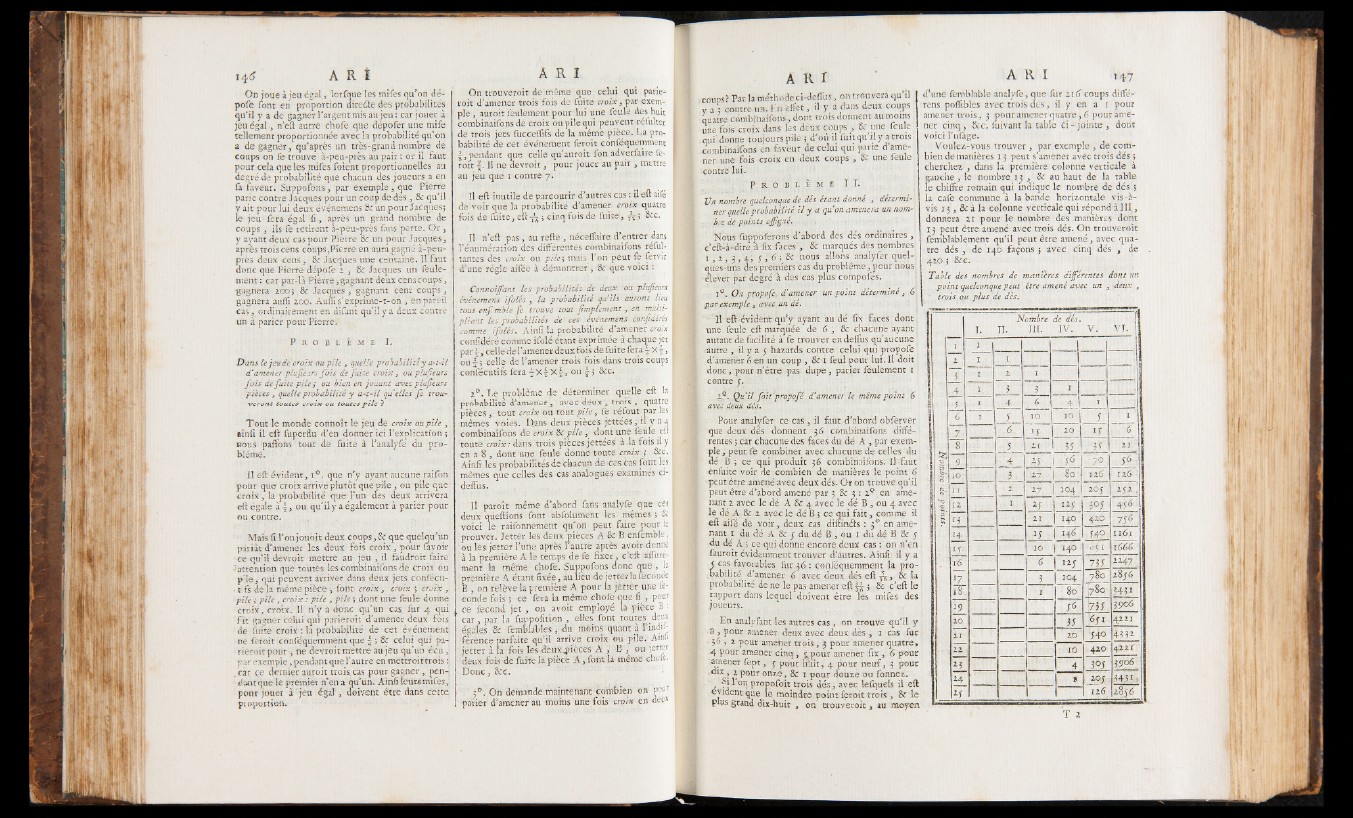 146 A R I
On joue à jeu égal, lorsque les mises qu'on dé-
pose sont en proportion directe des probabilités
qu'il y a de gagner l'argent mis au jeu : car jouer à
jeu égal, n'est autre chose que déposer une mise
tellement proportionnée avec la probabilité qu'on
a de gagner, qu'après un très-grand nombre de
coups on se trouve à-peu-près au pair : or il faut
pour cela que les mises soient proportionnelles au
degré de probabilité que chacun des joueurs a en
sa faveur. Supposons, par exemple, que Pierre
parie contre Jacques pour un coup de dés, & qu'il
y ait pour lui deux événemens & un pour Jacques;
le jeu sera égal si, après un grand nombre de
coups, ils se retirent à-peu-près sans perte. Or,
y ayant deux cas pour Pierre & un pour Jacques,
après trois cens coups Pierre en aura gagné à-peu-
près deux cens, & Jacques une centaine. Il faut
donc que Pierre dépose 2, & Jacques un seule-
ment : car par-là Pierre, gagnant deux cens coups,
gagnera 200; & Jacques, gagnant cent coups,
gagnera aussi 200. Aussi s'exprime-t-on, en pareil
cas, ordinairement en disant qu'il y a deux contre
un à parier pour Pierre.
PROBLÊME I.
Dans le jeu de croix ou pile, quelle probabilité y a-t-il
d'amener plusieurs fois de suite croix, ou plusieurs
fois de suite pile; ou bien en jouant avec plusieurs
pièces, quelle probabilité y a-t-il qu'elles se trou-
veront toutes croix ou toutes pile ?
Tout le monde connoît le jeu de croix ou pile,
ainsi il est superflu d'en donner ici l'explication;
nous passons tout de suite à l'analyse du pro-
blême.
Il est évident, 1°. que n'y ayant aucune raison
pour que croix arrive plutôt que pile, ou pile que
croix, la probabilité que l'un des deux arrivera
est égale à ½, ou qu'il y a également à parier pour
ou contre.
Mais si l'on jouoit deux coups, & que quelqu'un
pariât d'amener les deux fois croix, pour savoir
ce qu'il devroit mettre au jeu, il faudroit faire
attention que toutes les combinaisons de croix ou
pile, qui peuvent arriver dans deux jets consécu-
tifs de la même pièce, sont croix, croix; croix,
pile; pile, croix; pile, pile; dont une seule donne
croix, croix. Il n'y a donc qu'un cas sur 4 qui
fît gagner celui qui parieroit d'amener deux fois
de suite croix : la probabilité de cet événement
ne seroit conséquemment que ¼; & celui qui pa-
rieroit pour, ne devroit mettre au jeu qu'un écu,
par exemple, pendant que l'autre en mettroit trois :
car ce dernier auroit trois cas pour gagner, pen-
dant que le premier n'en a qu'un. Ainsi leurs mises,
pour jouer à jeu égal, doivent être dans cette
proportion.
A R I
On trouveroit de même que celui qui parie-
roit d'amener trois fois de suite croix, par exem-
ple, auroit seulement pour lui une seule des huit
combinaisons de croix ou pile qui peuvent résulter
de trois jets successifs de la même pièce. La pro-
babilité de cet événement seroit conséquemment
⅛, pendant que celle qu'auroit son adversaire se-
roit ⅞. Il ne devroit, pour jouer au pair, mettre
au jeu que 1 contre 7.
Il est inutile de parcourir d'autres cas : il est aisé
de voir que la probabilité d'amener croix quatre
fois de suite, est 1/16; cinq fois de suite, 1/32; &c.
Il n'est pas, au reste, nécessaire d'entrer dans
l'énumération des différentes combinaisons résul-
tantes des croix ou pile; mais l'on peut se servir
d'une règle aisée à démontrer, & que voici :
Connoissant les probabilités de deux ou plusieurs
événemens isolés, la probabilité qu'ils auront lieu
tous ensemble se trouve tout simplement, en multi-
pliant les probabilités de ces événemens considérés
comme isolés. Ainsi la probabilité d'amener croix
considéré comme isolé étant exprimée à chaque jet
par ½, celle de l'amener deux fois de suite sera ½ X ½,
ou ¼; celle de l'amener trois fois dans trois coups
consécutifs sera ½ X ½ X ½, ou ⅛; &c.
2°. Le problême de déterminer quelle est la
probabilité d'amener, avec deux, trois, quatre
pièces, tout croix ou tout pile, se résout par les
mêmes voies. Dans deux pièces jettées, il y a 4
combinaisons de croix & pile, dont une seule est
toute croix : dans trois pièces jettées à la fois il y
en a 8, dont une seule donne toute croix; &c.
Ainsi les probabilités de chacun de ces cas sont les
mêmes que celles des cas analogues examinés ci-
dessus.
Il paroît même d'abord sans analyse que ces
deux questions sont absolument les mêmes; &
voici le raisonnement qu'on peut faire pour le
prouver. Jetter les deux pièces A & B ensemble,
ou les jetter l'une après l'autre après avoir donné
à la première A le temps de se fixer, c'est assuré-
ment la même chose. Supposons donc que, la
première A étant fixée, au lieu de jetter la seconde
B, on relève la première A pour la jetter une se-
conde fois; ce sera la même chose que si, pour
ce second jet, on avoit employé la pièce B :
car, par la supposition, elles sont toutes deux
égales & semblables, du moins quant à l'indif-
férence parfaite qu'il arrive croix ou pile. Ainsi
jetter à la fois les deux pièces A, B, ou jetter
deux fois de suite la pièce A, sont la même chose.
Donc, &c.
3°. On demande maintenant combien on peut
parier d'amener au moins une fois croix en deux
A R I
coups? Par la méthode ci-dessus, on trouvera qu'il
y a 3 contre un. En effet, il y a dans deux coups
quatre combinaisons, dont trois donnent au moins
une fois croix dans les deux coups, & une seule
qui donne toujours pile; d'où il suit qu'il y a trois
combinaisons en faveur de celui qui parie d'ame-
ner une fois croix en deux coups, & une seule
contre lui.
PROBLÊME II.
Un nombre quelconque de dés étant donné, détermi-
ner quelle probabilité il y a qu'on amenera un nom-
bre de points assigné.
Nous supposerons d'abord des dés ordinaires,
c'est-à-dire à six faces, & marqués des nombres
1, 2, 3, 4, 5, 6; & nous allons analyser quel-
ques-uns des premiers cas du problême, pour nous
élever par degré à des cas plus composés.
1°. On propose d'amener un point déterminé, 6
par exemple, avec un dé.
Il est évident qu'y ayant au dé six faces dont
une seule est marquée de 6, & chacune ayant
autant de facilité à se trouver en dessus qu'aucune
autre, il y a 5 hazards contre celui qui propose
d'amener 6 en un coup, & 1 seul pour lui. Il doit
donc, pour n'être pas dupe, parier seulement 1
contre 5.
2°. Qu'il soit proposé d'amener le même point 6
avec deux dés.
Pour analyser ce cas, il faut d'abord observer
que deux dés donnent 36 combinaisons diffé-
rentes; car chacune des faces du dé A, par exem-
ple, peut se combiner avec chacune de celles du
dé B; ce qui produit 36 combinaisons. Il faut
ensuite voir de combien de manières le point 6
peut être amené avec deux dés. Or on trouve qu'il
peut être d'abord amené par 3 & 3 : 2° en ame-
nant 2 avec le dé A & 4 avec le dé B, ou 4 avec
le dé A & 2 avec le dé B; ce qui fait, comme il
est aisé de voir, deux cas distincts : 3° en ame-
nant 1 du dé A & 5 du dé B, ou 1 du dé B & 5
du dé A; ce qui donne encore deux cas : on n'en
sauroit évidemment trouver d'autres. Ainsi il y a
5 cas favorables sur 36 : conséquemment la pro-
babilité d'amener 6 avec deux dés est 5/36, & la
probabilité de ne le pas amener est 31/36; & c'est le
rapport dans lequel doivent être les mises des
joueurs.
En analysant les autres cas, on trouve qu'il y
a, pour amener deux avec deux dés, 1 cas sur
36, 2 pour amener trois, 3 pour amener quatre,
4 pour amener cinq, 5 pour amener six, 6 pour
amener sept, 5 pour huit, 4 pour neuf, 3 pour
dix, 2 pour onze, & 1 pour douze ou sonnez.
Si l'on proposoit trois dés, avec lesquels il est
évident que le moindre point seroit trois, & le
plus grand dix-huit, on trouveroit, au moyen
A R I 147
d'une semblable analyse, que sur 216 coups diffé-
rens possibles avec trois dés, il y en a 1 pour
amener trois, 3 pour amener quatre, 6 pour ame-
ner cinq, &c. suivant la table ci-jointe, dont
voici l'usage.
Voulez-vous trouver, par exemple, de com-
bien de manières 13 peut s'amener avec trois dés;
cherchez, dans la première colonne verticale à
gauche, le nombre 13, & au haut de la table
le chiffre romain qui indique le nombre de dés;
la case commune à la bande horizontale vis-à-
vis 13, & à la colonne verticale qui répond à III,
donnera 21 pour le nombre des manières dont
13 peut être amené avec trois dés. On trouveroit
semblablement qu'il peut être amené, avec qua-
tre dés, de 140 façons; avec cinq dés, de
420; &c.
Table des nombres de manières différentes dont un
point quelconque peut être amené avec un, deux,
trois ou plus de dés.
Nombre de dés.
I. II. III. IV. V. VI.
Nombre de points.
1 1
2 1 1
3 1 2 1
4 1 3 3 1
5 1 4 6 4 1
6 1 5 10 10 5 1
7 6 15 20 15 6
8 5 21 35 35 21
9 4 25 56 70 56
10 3 27 80 126 126
11 2 27 104 205 252
12 1 25 125 305 456
13 21 140 420 756
14 15 146 540 1161
15 10 140 651 1666
16 6 125 735 2247
17 3 104 780 2856
18 1 80 780 3431
19 56 735 3906
20 35 651 4221
21 20 540 4332
22 10 420 4221
23 4 305 3906
24 1 205 3431
25 126 2856
T 2